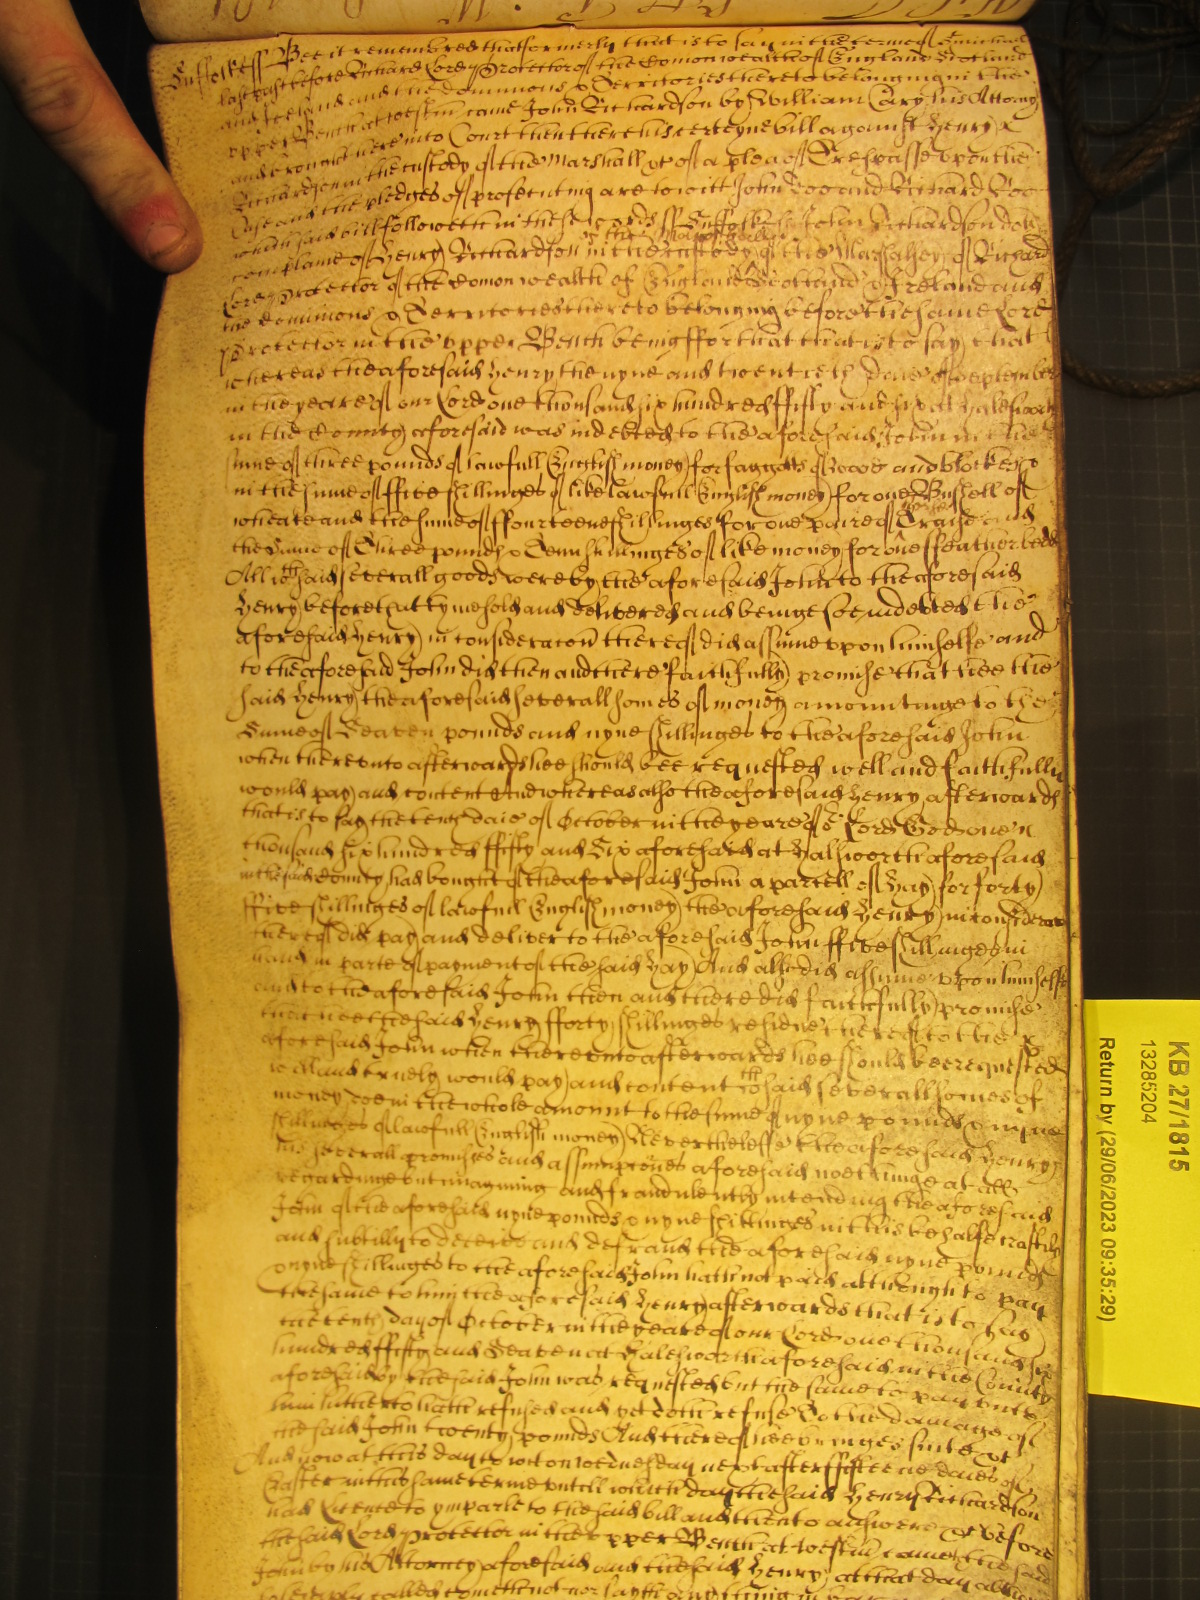 Suffolke ss Bee it remembred that formerly that is to say in the terme of
last past before Richard Lord Protector of the Comonwealth of England Scotland
and Ireland and the dominions & Territories thereto belonging in the
upper Bench at Westm came John Richardson by William Cary his Attorny
and brought here into Court then there his certeyne bill against Henry
Richardson in the custody of the Marshall &c of a plea of Trespasse upon the
Case and the pledges of prosecuting are to witt John Doo and Richard Roo
which said bill followeth in these words ss Suffolke ss John Richardson doth
complaine of Henry Richardson in the custody of the Marshalsey of Richard
Lord Protector of the Comonwealth of England Scotland & Ireland and
the dominions & Territories thereto belonging before the same Lord
Protector in the upper Bench being ffor that that is to say that
whereas the aforesaid Henry the nyne and twentieth daie of September
in the yeare of our Lord one thousand six hundred ffifty and six at Halesworth
in the County aforesaid was indebted to the aforesaid John in the
sume of three pounds of lawfull English money for faggotts of wood and blockes &
in the sume of ffive shillinges of like lawfull English money for one Bushell of
wheate and the sume of ffourteene shillinges for one paire of and
the sume of Three pounds & Tenn shillinges of like money for one ffeather bedd
All wch said severall goods were by the aforesaid John to the aforesaid
Henry before that tyme sold and delivered and beinge soe indebted the
aforesaid Henry in consideracon thereof did assume upon himselfe and
to the aforesaid John did then and there faithfully promise that hee the
said Henry the aforesaid severall somes of money amountinge to the
Sume of Seaven pounds and nyne shillinges to the aforesaid John
when thereunto afterwards hee should bee requested well and faithfully
would pay and content And whereas also the aforesaid Henry afterwards
that is to say the tenth daie of October in the yeare of Lord God one
thousand six hundred ffifty and Six aforesaid at Halsworth aforesaid
in the said County had bought of the aforesaid John a parcell of Hay for forty
ffive shillinges of lawfull English money the aforesaid Henry in consideracon
thereof did pay and deliver to the aforesaid John ffive shillinges in
hand in parte of payment of the said Hay And also did assume upon himselfe
and to the aforesaid John then and there did faithfully promise
that hee the said Henry fforty shillinges residue thereof to the
aforesaid John when thereunto afterwards hee should bee requested
well and truely would pay and content wch said severall somes of
money doe in the whole amount to the sume of nyne pounds & nyne
shillinges of lawfull English money Neverthelesse the aforesaid Henry
his severall promises and assumpcons aforesaid nothinge at all
regardinge but imagining and fraudulently intending the aforesaid
John of the aforesaid nyne pounds & nyne shillinges in this behalfe craftily
and subtilly to deceive and defraud the aforesaid nyne pounds
& nyne shillinges to the aforesaid John hath not paid although to pay
the same to him the aforesaid Henry afterwards that is to say
the tenth day of October in the yeare of our Lord one thousand six
hundred ffifty and Seaven at Halesworth aforesaid in the County
aforesaid by the said John was requested but the same to pay unto
him hitherto hath refused and yet doth refuse To the damage of
the said John twenty pounds And thereof hee bringes suite &c
And now at this day to wit on wednesday next after ffifteene daies of
Easter in this same terme untill which day the said Henry Richardson
had licence to imparle to the said bill and then to answere &c before
the said Lord Protector in the upper Bench at Westm came the said
John by his Attorney aforesaid and the said Henry at that day
called cometh not nor sayth any thing in
KB 27/1815
13285204
Return by (29/06/2023 09:35:29)